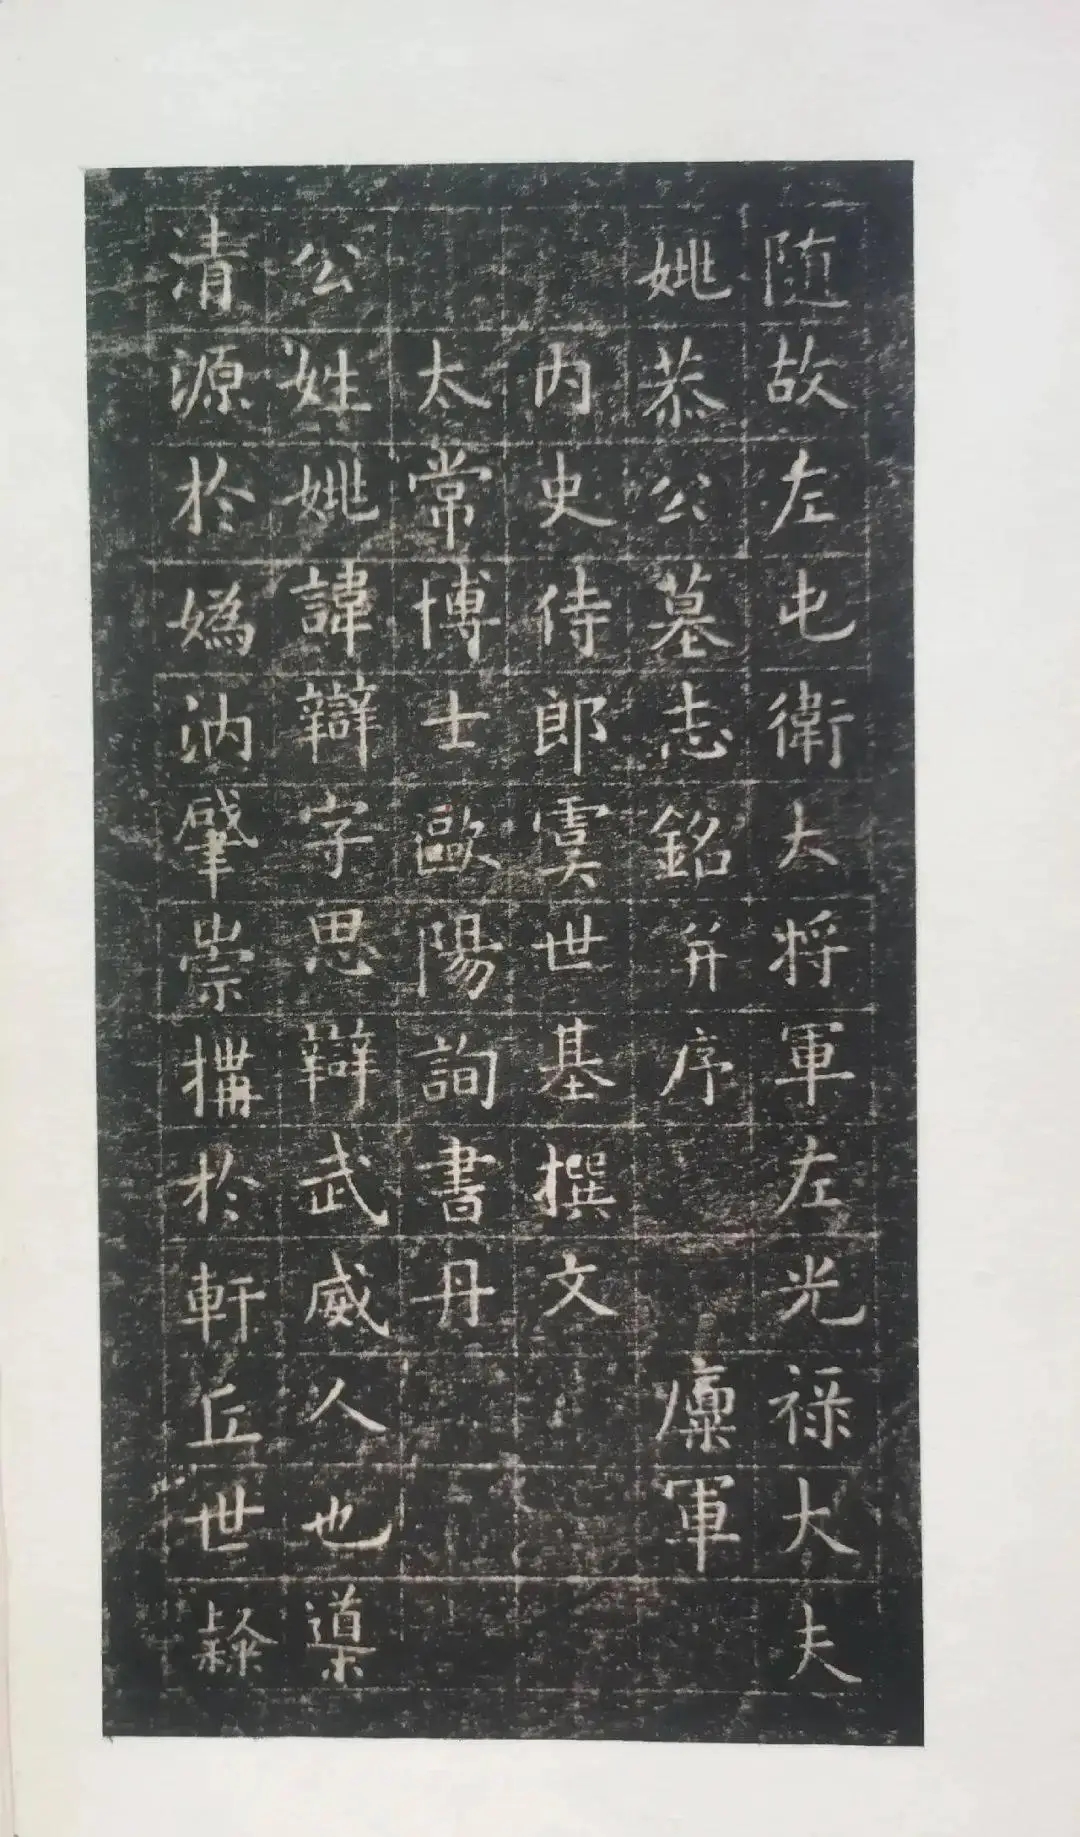 随故左屯衛大将軍左光禄大夫
姚恭公墓志銘并序 廩軍
内史侍郎虞世基撰文
太常博士歐陽詢書丹
公姓姚諱辯字思辯武威人也導
清源於嬀汭肇崇構於軒丘世